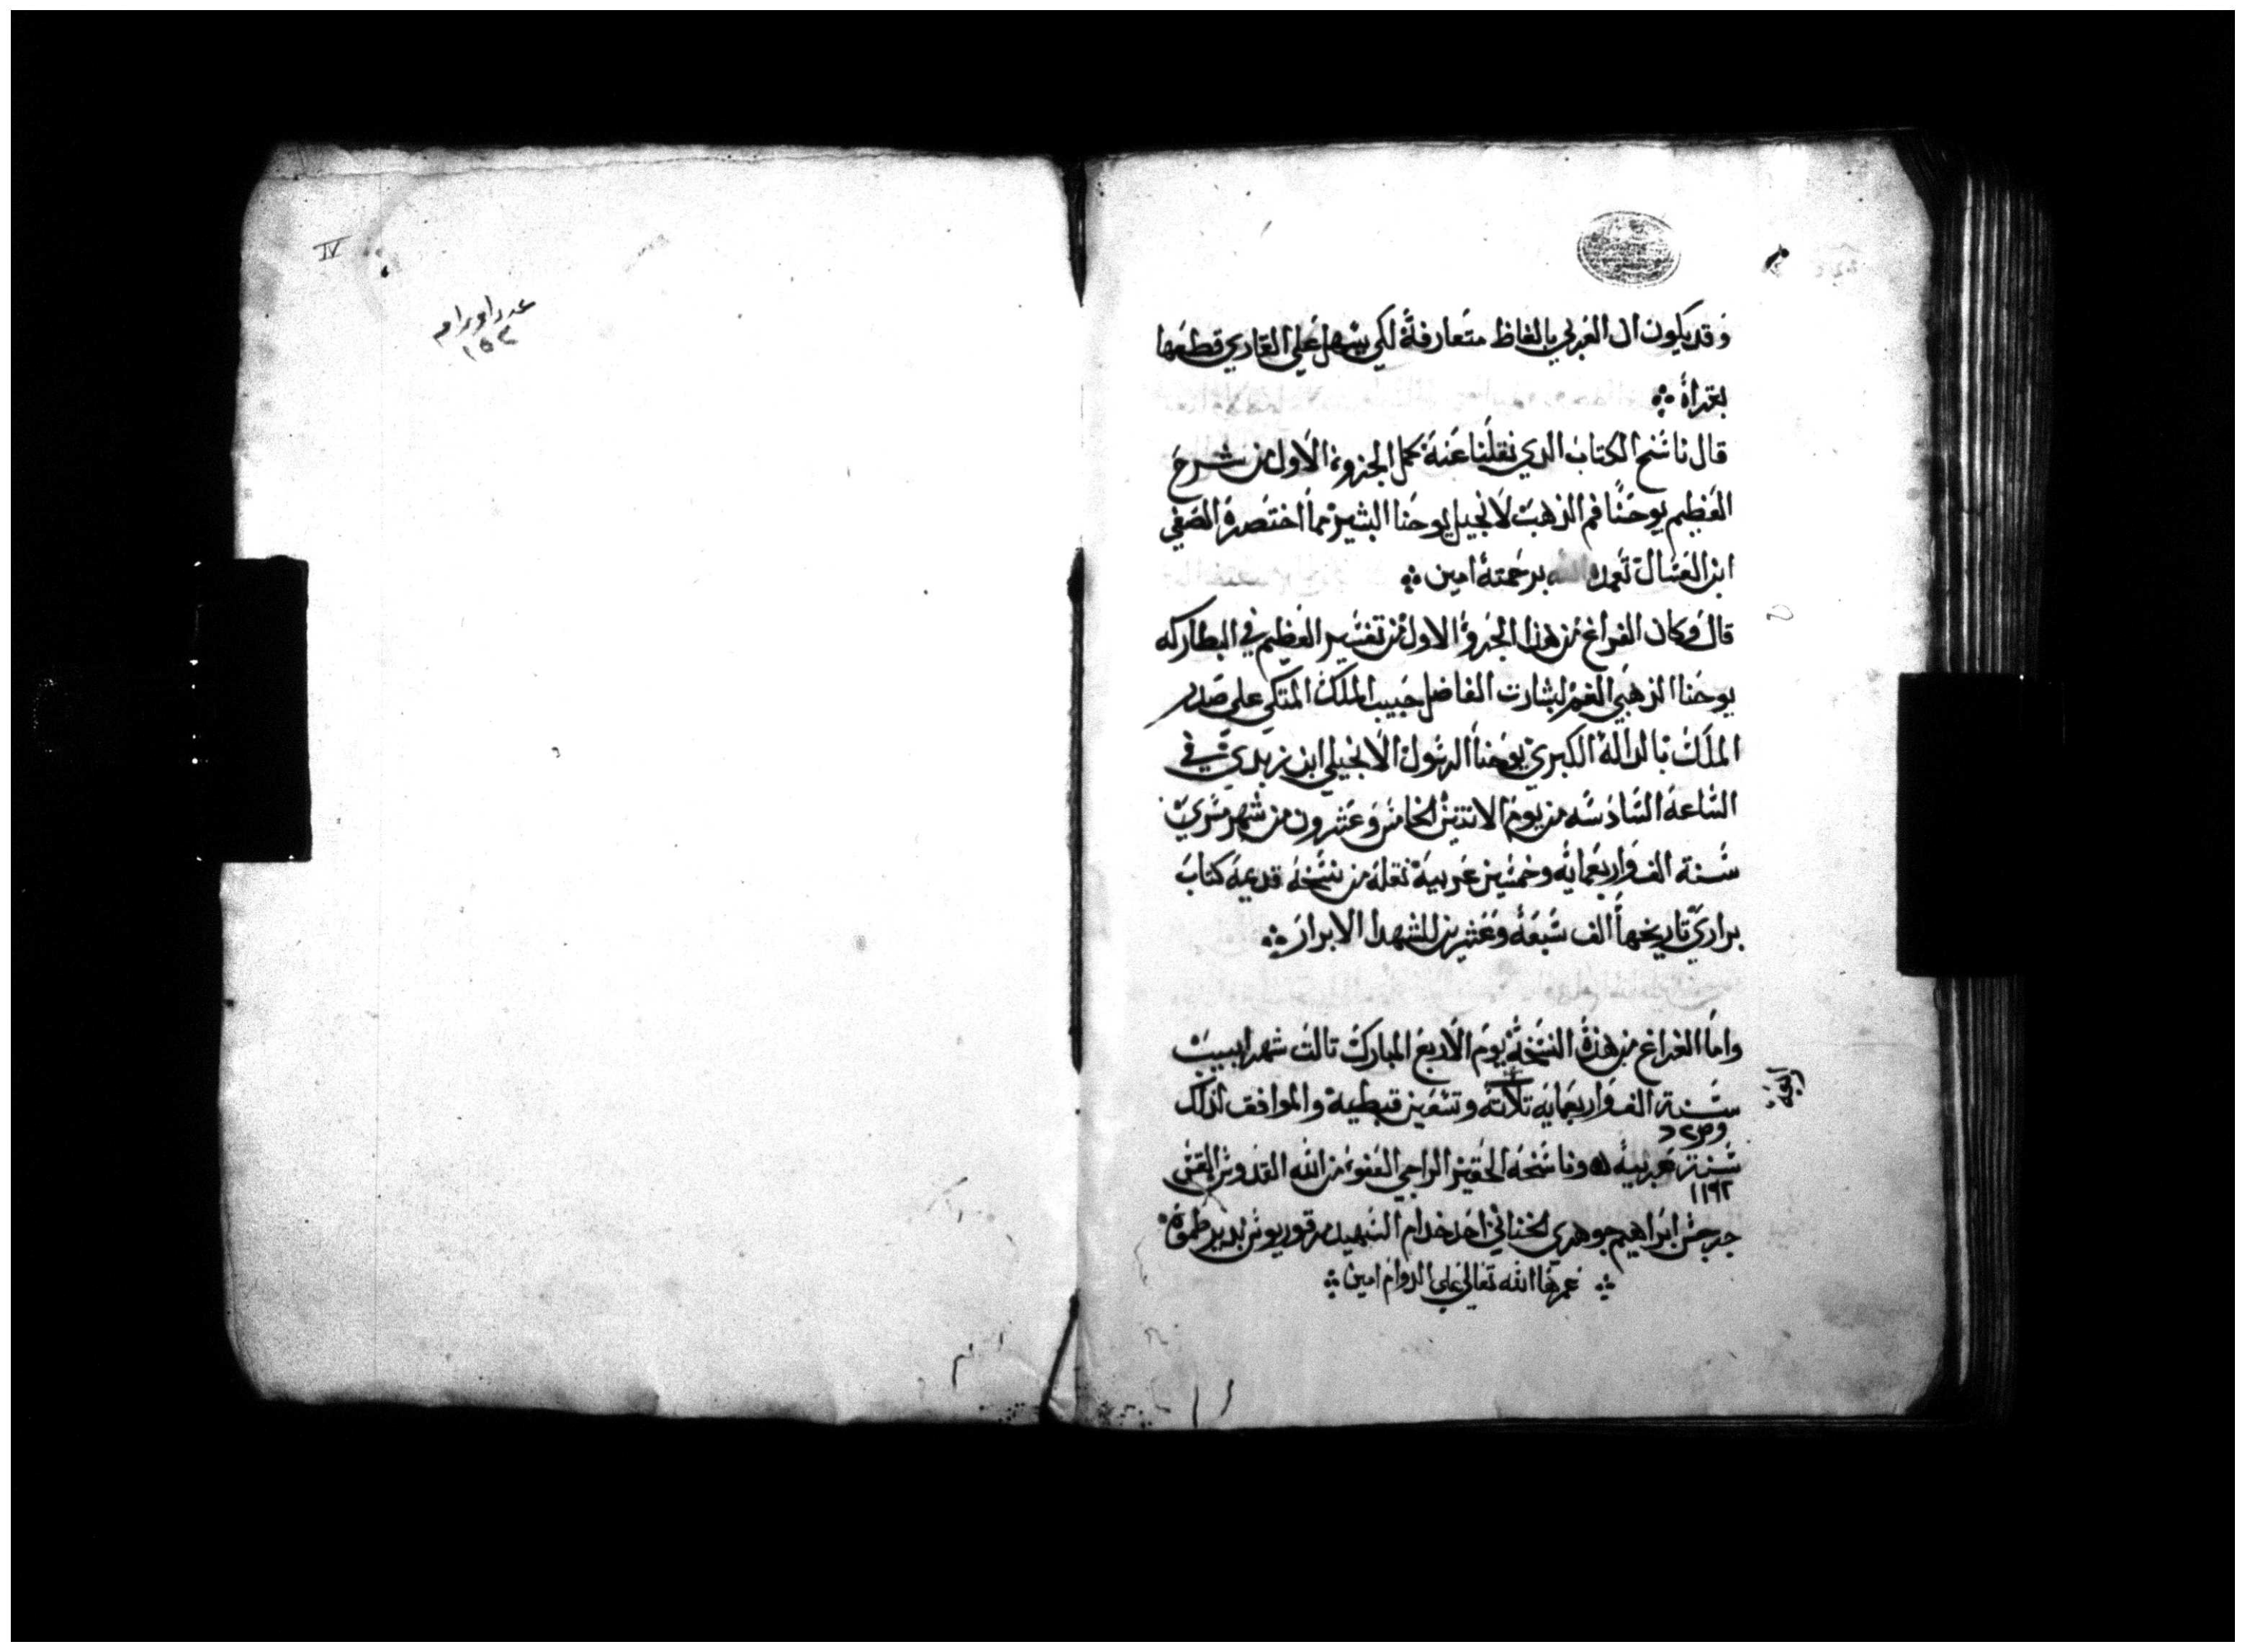 وقد يكون ال العربي بالفاظ متعارفة لكي يسهل علي القاري قطعها
بقراة
قال ناسخ الكتاب الدي نقلنا عنه كمل الجزو الاول من شرح
العظيم يوحنا فم الذهب لانجيل يوحنا البشير مما اختصره الصفي
ابن العسال تغمده الله برحمته امين
قال وكان الفراغ من هدا الجزو الاول من تفسير العظيم في البطاركه
يوحنا الذهبي الفم لبشارت الفاضل حبيب الملك المتكي علي صدر
الملك بالدالة الكبري يوحنا الرسول الانجيلي ابن زبدي في
الساعة السادسه من يوم الاتنين الخامس وعشرون من شهر مسري
سنة الف واربعمايه وخمسين عربية نقله من نسخة قديمة كتاب
براري تاريخها الف سبعة وعشرين للشهدا الابرار
واما الفراغ من هذه النسخة يوم الاربع المبارك تالت شهر ابيب
سنة الف واربعمايه تلاته وتسعين قبطية والموافق لذلك
سنة عربية وناسخه الحقير الراجي العفو من الله القدوس القس
١١٩٢
جرجس ابراهيم جوهري الخناني احد خدام الشهيد مرقوريوس بدير طموة
عمرها الله تعالي علي الدوام امين
IV
عدد اوراق
١٥٤